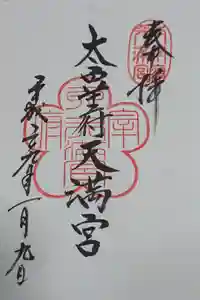 奉拝
太宰府天満宮
平成二九年一月九日